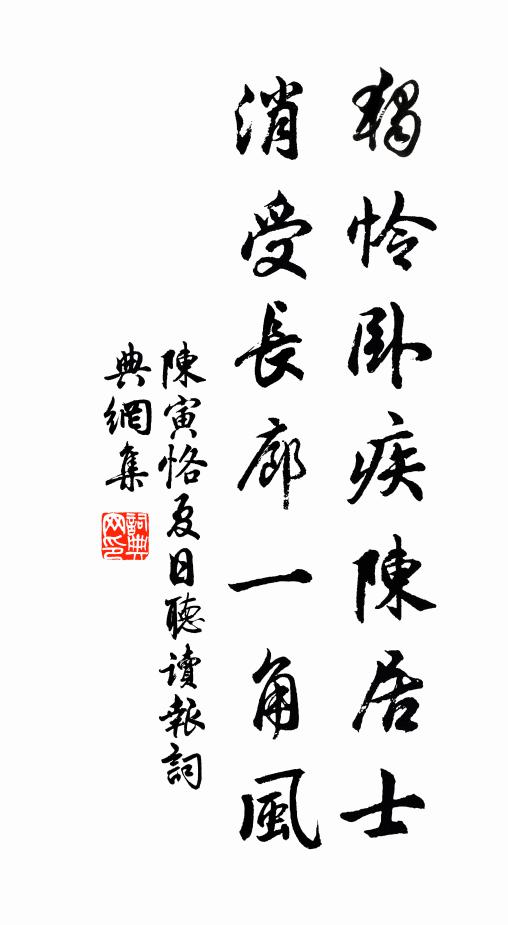 獨憐卧疾陳居士
消受長廊一角風
陳寅恪夏日聽讀報詞
典網集
詞典
网印